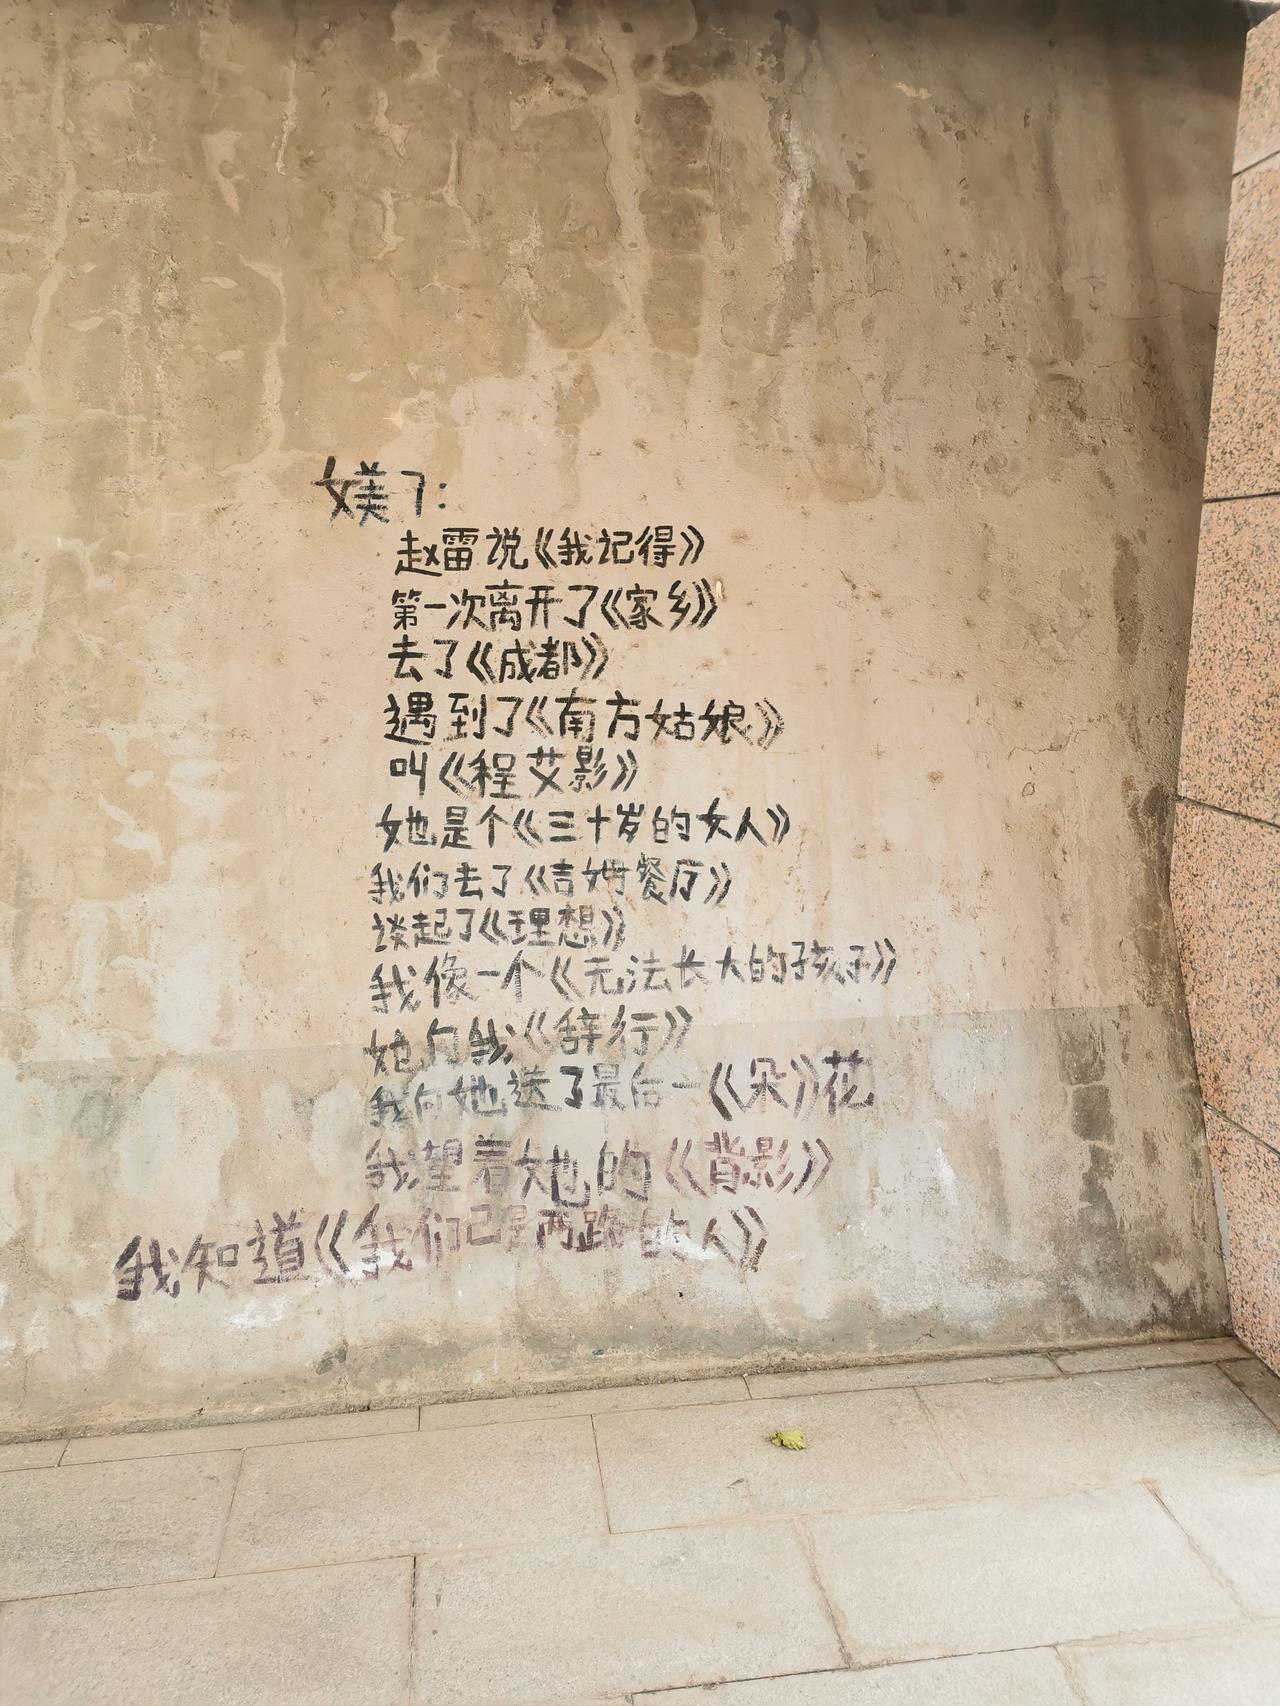 媄了:
赵雷说《我记得》
第一次离开了《家乡》
去了《成都》
遇到了《南方姑娘》
叫《程艾影》
她是个《三十岁的女人》
我们去了《吉姆餐厅》
谈起了《理想》
我像一个《无法长大的孩子》
她向我《辞行》
我向她送了最后一《朵》花
我望着她的《背影》
我知道《我们已是两路的人》